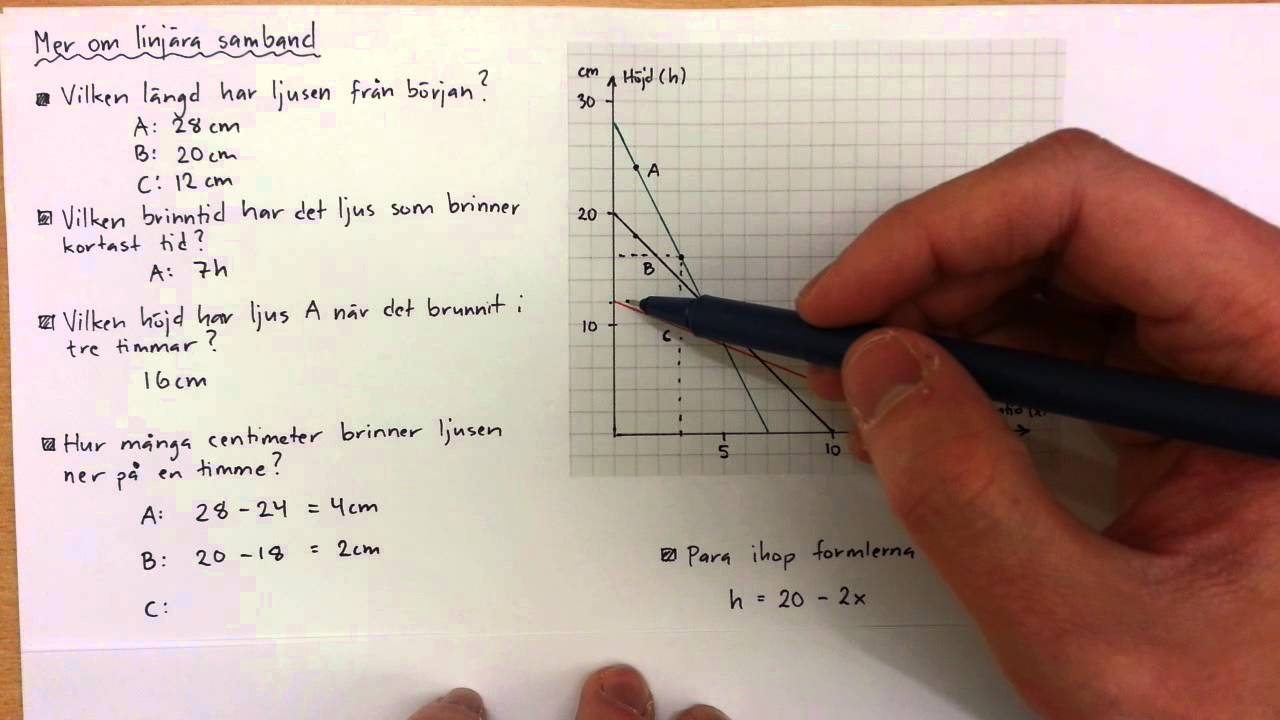 Mer om linjära samband
Vilken längd har ljusen från början?
A: 28 cm
B: 20 cm
C: 12 cm
Vilken brinntid har det ljus som brinner
kortast tid?
A: 7h
Vilken höjd har ljus A när det brunnit i
tre timmar?
16 cm
Hur många centimeter brinner ljusen
ner på en timme?
A: 28 - 24 = 4cm
B: 20 - 18 = 2cm
C:
cm
Höjd (h)
30
A
20
B
10
C
5
10
Para ihop formlerna
h = 20 - 2x